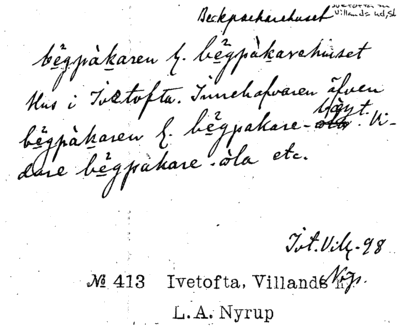 Beckpackarehuset
Villands hd, Sk
bėgpȧkaren l. bėgpȧkarehuset
Hus i Ivetofta. Innehafvaren äfven
bėgpȧkaren l. bėgpakare-
Vi-
dare bėgpȧkare-öla etc.
Ivt. Vill -98
№ 413 Ivetofta, Villands
L. A. Nyrup